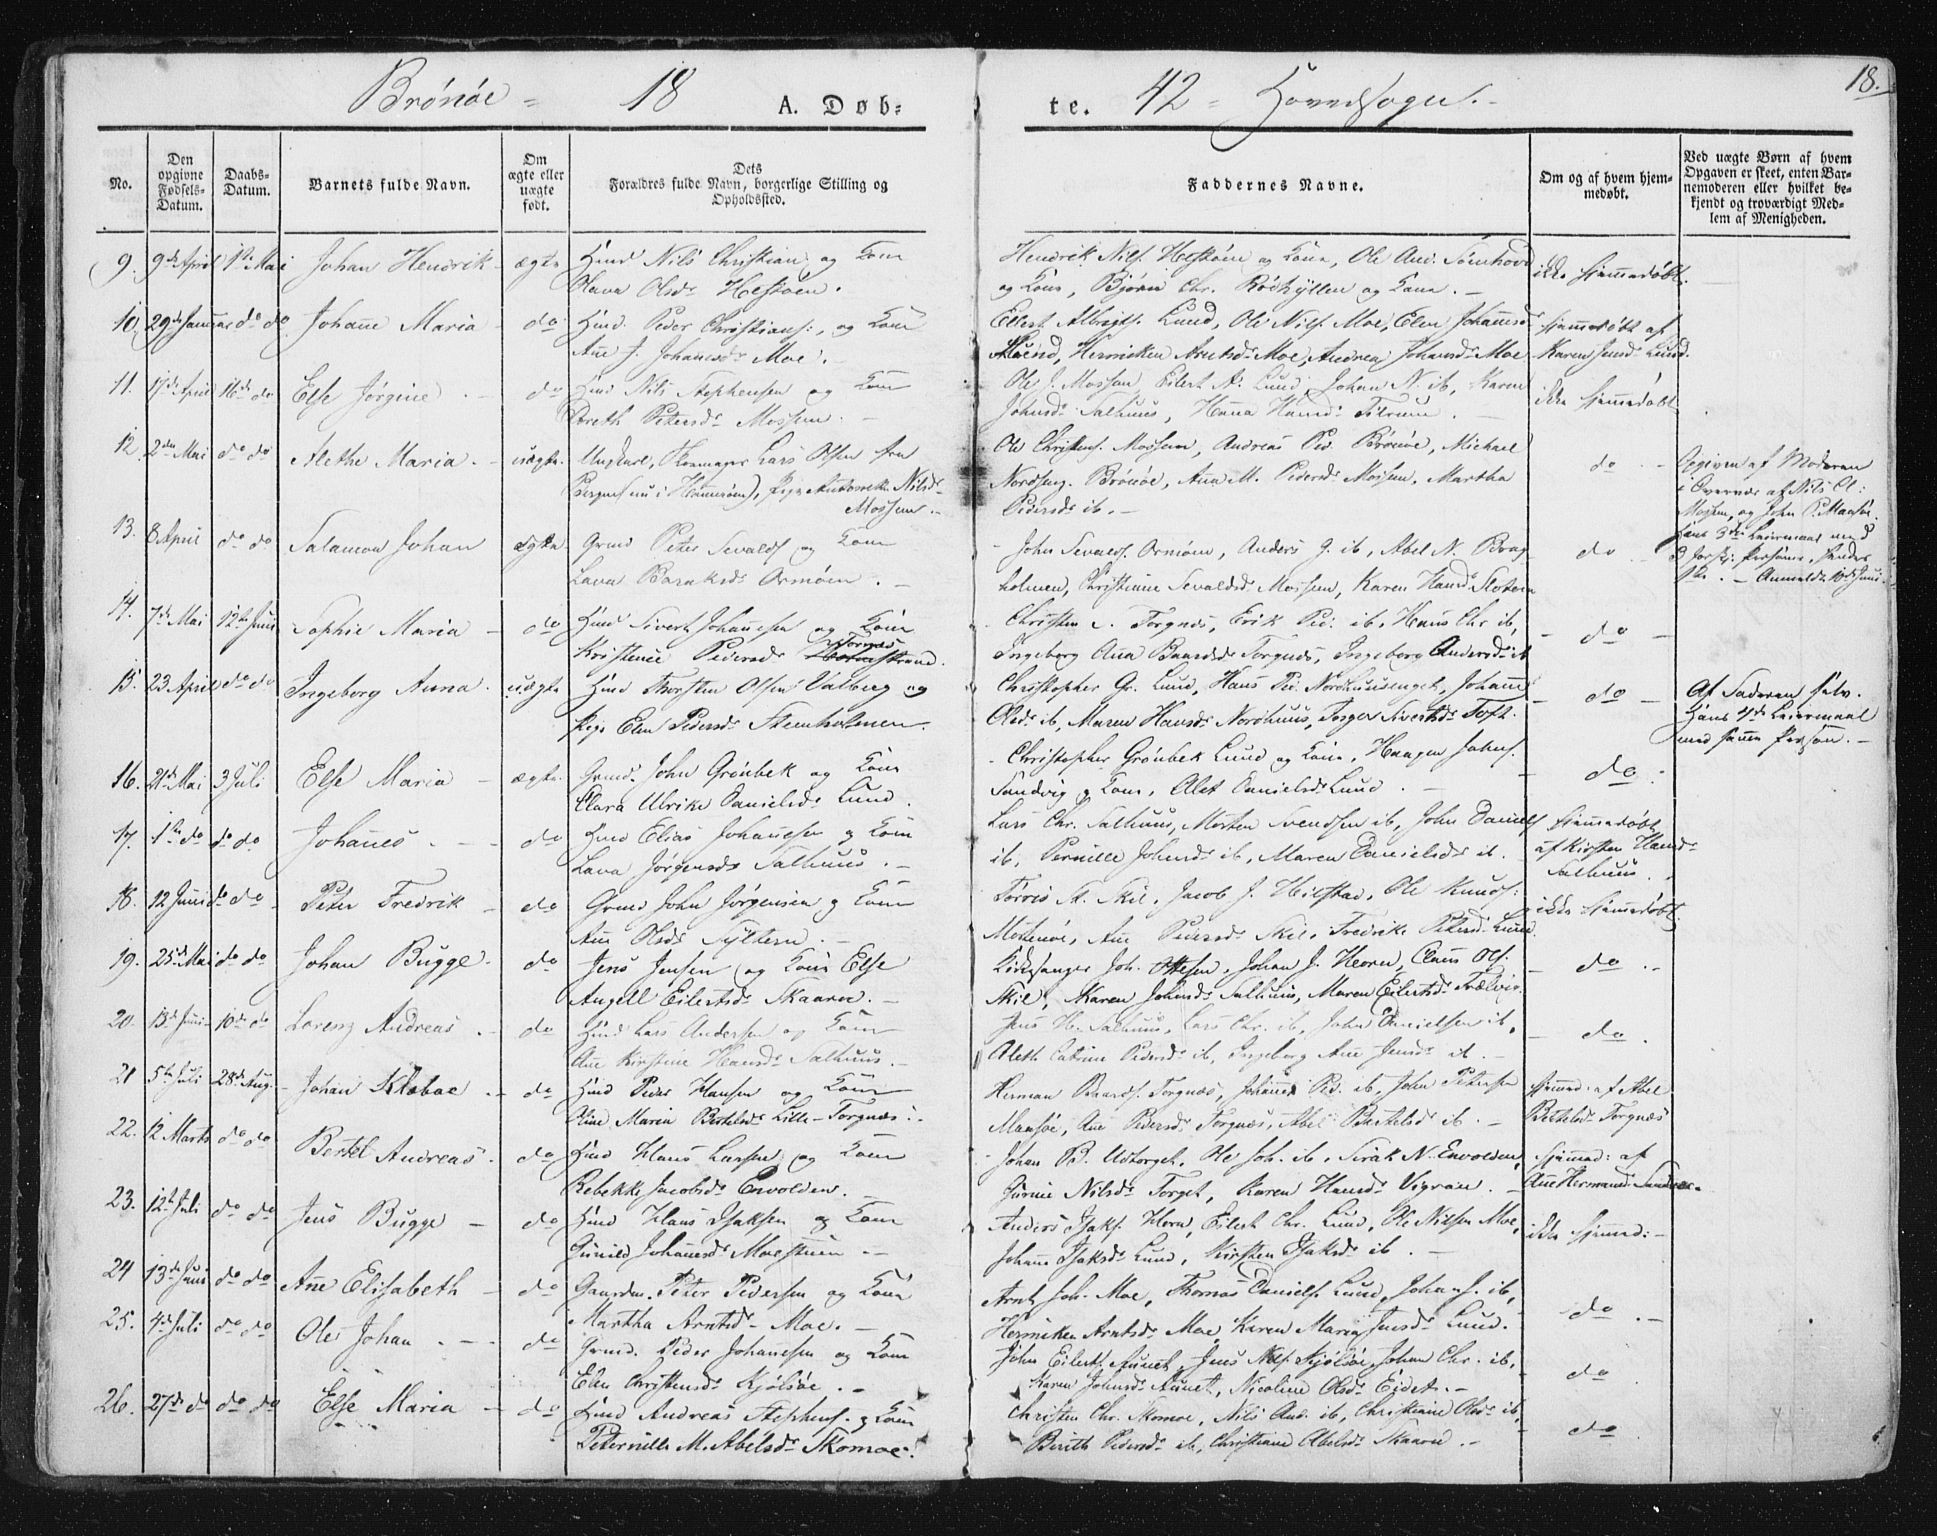 Brönöe = 18 A. Døb= te. 42 = Hovedsogn.
18.
No.
Den opgivne Fødsels-Datum.
Daabs-Datum.
Barnets fulde Navn.
Om ægte eller uægte født.
Dets Forældres fulde Navn, borgerlige Stilling og Opholdssted.
Faddernes Navne.
Om og af hvem hjemmedøbt.
Ved uægte Børn af hvem Opgaven er skeet, enten Barnemoderen eller hvilket bekjendt og troværdigt Medlem af Menigheden.
9. 9de April 1ste Mai Johan Hendrik ægte Huusmd Nils Christian og Kone
Olava Olsdr Helstøen.
Hendrik Nils. Helstøen og Kone, Ole And. Sömhovd
og Kone, Björn Chr. Rödhyllen og Kone.
ikke hjemmedøbt.
10. 29de Januar do do Johanne Maria do Huusmd Peder Christians. og Kone
Ane J. Johansdr Moe.
Eilert Albrigts. Lund, Ole Nils. Moe, Elen Johansdr
Lund, Hermiken Arntsdr Moe, Andrea Johansdr Moe
hjemmedøbt af
Karen Jensdr Lund.
11. 17de April 16de do Else Jörgine do Huusmd Nils Stephensen og Kone
Bereth Petersdr Mossem.
Ole J. Mossem, Eilert A. Lund, Johan N. ib, Karen
Johnsdr Salhuus, Hanna Hansdr Tilrum.
ikke hjemmedøbt
12. 2den Mai do do Alethe Maria uægte. Ungkarl, Skomager Lars Olsen fra
Bergen (nu i Hammerøen), Pige Antonette Nilsdr
Mossem.
Ole Christens. Mossem, Andreas Ped. Brönöe, Michael
Nordseng Brönöe, Ane M. Pedersdr Mossem, Martha
Pedersdr ib.
do
Opgiven af Moderen
i Overvær af Nils Ol:
Mossem, og John P. Maasöe.
Hans 3de Leiermaal med
3 forskj: Personer, hendes
1ste. Anmeldt 10de Juni.
13. 8 April do do Salamon Johan ægte. Grmd Peter Sevalds. og Kone
Lava Barnksdr Ormöen.
John Sevalds. Ormöen, Anders J. ib, Abel N. Brag
holmen, Christiane Sevaldsdr Mossem, Karen Hansdr Sloteren
do
14. 7de Mai 12te Juni Sophie Maria do Huusmd Sivert Johannesen og Kone
Kristence Pedersdr Torgnes
Christen Torgnæs, Erik Ped: ib, Hans Chr. ib,
Ingeborg Ana Baardsdr Torgnæs, Ingeborg Andersdr ib
do
15. 23 April do do Ingeborg Anna uægte Huusmd Thorsten Olsen Valberg og
Pige Elen Pedersdr Steenholmen.
Christopher Gr. Lund, Hans Ped. Nordhuusenget, Johanne
Olsdr ib, Maren Hansdr Nordhuus, Inger Sivertsdr Toft.
do
Af Faderen selv.
Hans 4de Leiermaal
med samme Person.
16. 21de Mai 3 Juli Else Maria ægte. Grmd. John Grönbek og Kone
Clara Ulrike Danielsdr Lund.
Christopher Grönbek Lund og Kone, Haagen Johns.
Sandvig og Kone, Alet Danielsdr Lund.
do.
17. 1ste do do do Johanes do Huusmd Elias Johannesen og Kone
Lava Jörgensdr Salhuus.
Lars Chr. Salhuus, Morten Svendsen ib, John Daniels
ib, Pernille Johnsdr ib, Maren Danielsdr ib.
hjemmedøbt
af Kirsten Hansdr
Salhuus.
18. 12 Juni do do Peter Fredrik do Grmd John Jörgensen og Kone
Ane Olsdr Sylteren.
Torris A. Skil, Jacob J. Hilstad, Ole Knuds.
Mostenöe, Ane Pedersdr Skil, Fredrike Petersdr Lund.
ikke hjemmedøbt
19. 25de Mai do do Johan Bugge do Jens Jensen og Kone Else
Angell Eilertsdr Skaaren.
Kirkesanger Joh. Ottesen, Johan J. Heern, Claus Ols.
Skil, Karen Johnsdr Salhuus, Maren Eilertsdr Trælvig.
do
20. 13de Juni 10de do Lorenz Andreas do Huusmd Lars Andersen og Kone
Ane Kirstine Hansdr Salhuus.
Jens H. Salhuus, Lars Chr. ib, John Danielsen ib,
Aleth Catrine Pedersdr ib, Ingeborg Ane Jensdr ib.
do
21 5te Juli 28de Aug. Johan Klobae do Huusmd Peder Hansen og Kone
Oline Maria Bertelsdr Lille-Torgnæs.
Herman Baards. Torgnæs, Johannes Ped. ib, John Petersen
Maasöe, Ane Pedersdr Torgnæs, Abel Bertelsdr ib.
hjemmed. af Abel
Bertelsdr Torgnæs
22. 12 Marts do do Bertel Andreas do Huusmd Hans Larsen og Kone
Rebekke Jacobsdr Envolden.
Johan B. Udtorget, Ole Joh. ib, Sirak N. Envolden,
Jürine Nilsdr Torget, Karen Hansdr Vigran.
hjemmed: af
Ane Hermansdr
23. 12te Juli do do Jens Bugge do Huusmd Hans Isaksen og Kone
Gunild Johansdr Moestuen
Anders Isaks. Horn, Eilert Chr. Lund, Ole Nilsen Moe,
Johanne Isaksdr Lund, Kirsten Isaksdr ib.
ikke hjemmed:
24 13de Juni do do Ane Elisabeth do Gaardm. Peter Pedersen og Kone
Martha Arntsdr Moe.
Arnt Joh. Moe, Thomas Daniels. Lund, Johan J. ib,
Hermiken Arntsdr Moe, Karen Maria Jensdr Lund.
do
25. 4de Juli do do Ole Johan do Grmd. Peder Johansen og Kone
Elen Christensdr Kjölsöe.
John Eilerts. Aunet, Jens Nils. Kjölsöe, Johan Chr. ib,
Karen Johnsdr Aunet, Nicoline Olsdr Eidet.
do
26. 27de do do do Else Maria do Huusmd Andreas Stephens. og Kone
Peternille M. Abelsdr Skomoe.
Christen Chr. Skomoe, Nils And. ib, Christiane Olsdr ib,
Berith Pedersdr ib, Christiane Abelsdr Skaaren.
do